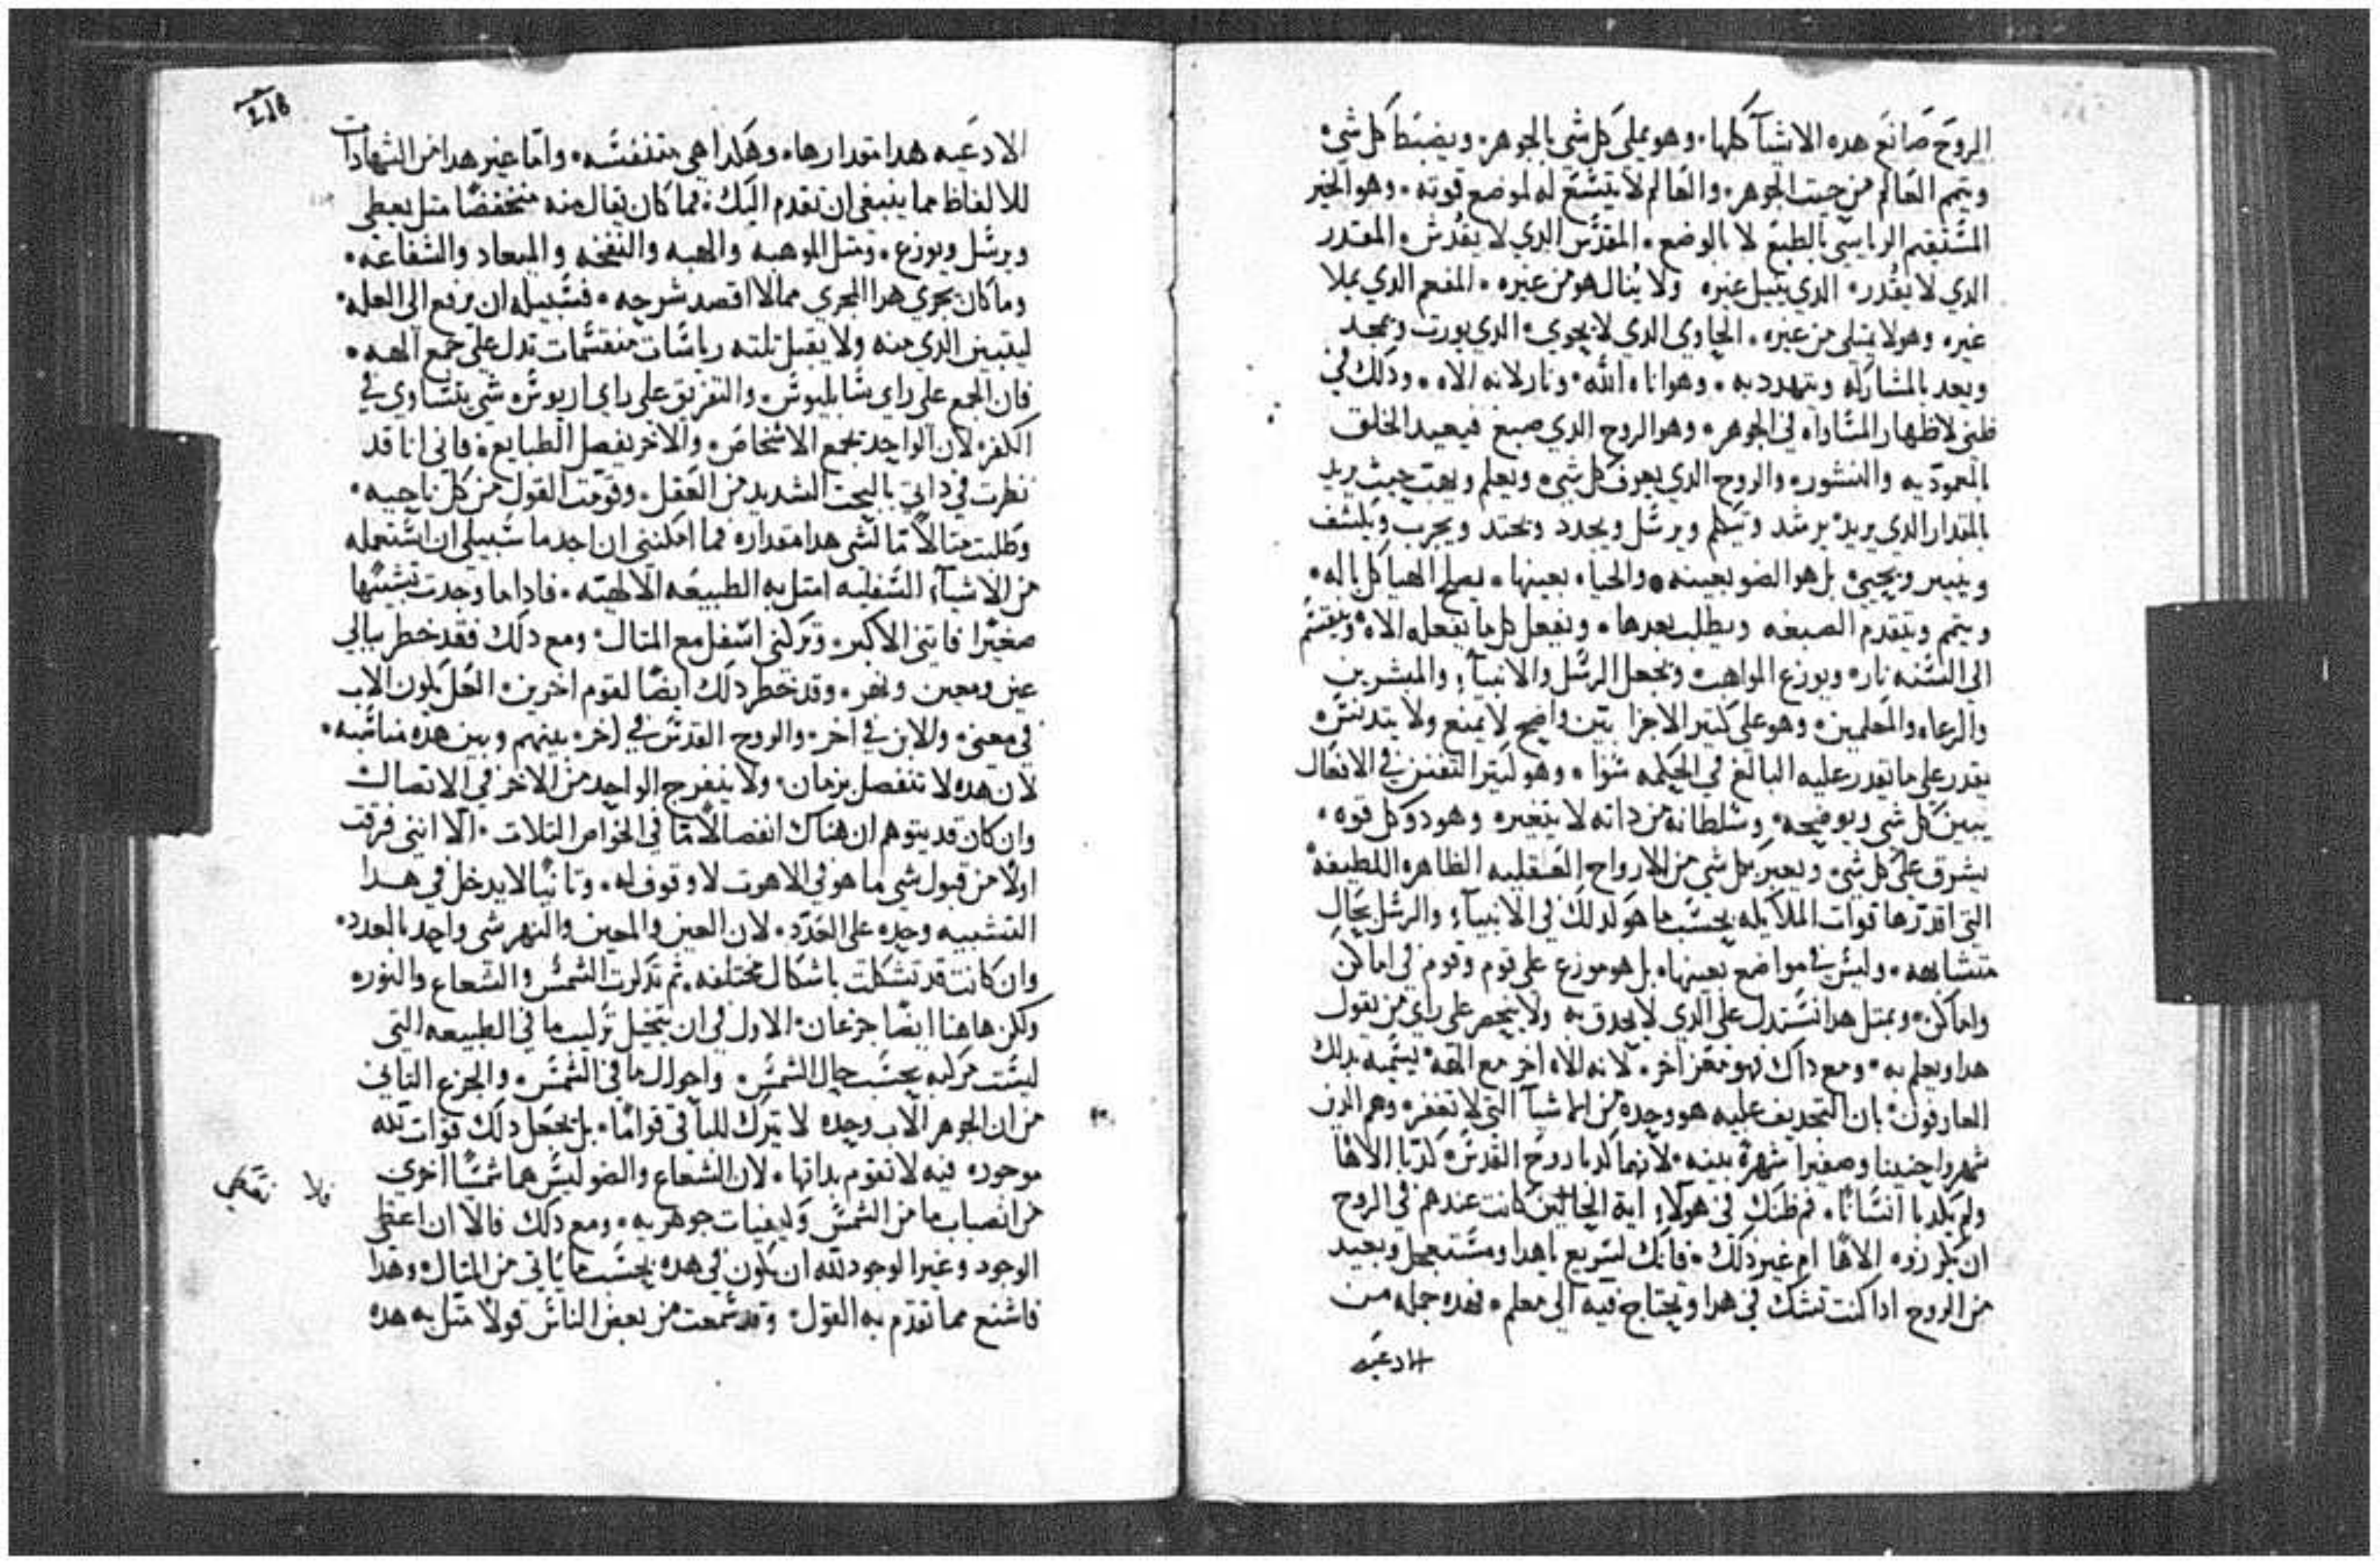 الروح صانع هده الاشيآ كلها. وهو يملي كل شي بالجوهر. ويضبط كل شي.
ويتمم العالم من حيت الجوهر. والعالم لا يتسع له لموضع قوته. وهو الخير
المستقيم الرياسي بالطبع لا بالوضع. المقدس الدي لا يقدس. المقدر
الدي لا يقدر. الدي ينيل غيره ولا ينال هو من غيره. المفعم الدي يملا
غيره وهو لا يمتلي من غيره. الحاوي الدي لا يحوي. الدي يورت ويمجد
ويعد بالمشاركه ويتهدد به. وهو اناه الله. ونار لانه الاه. ودلك في
ظني لاظهار المساواه في الجوهر. وهو الروح الدي صبغ فيعيد الخلق
بالمعموديه والنشور. والروح الدي يعرف كل شي. ويعلم ويهب حيث يريد
بالمقدار الدي يريد. يرشد ويتكلم ويرسل ويجدد ويحتد ويجرب ويكشف
وينير ويحيي. بل هو الضو بعينه. والحياه بعينها. يصلح الهياكل باله.
ويتمم ويتقدم الصبغه ويطلب بعدها. ويفعل كل ما يفعله الاه. ويقتسم
الي السنه نار. ويوزع المواهب. ويجعل الرسل والانبيآ. والمبشرين
والرعاه والمعلمين. وهو علي كتير الاجزا بين واضح لا يمنع ولا يتدنس.
يقدر علي ما يقدر عليه البالغ في الحكمه سوا. وهو كتير التفنن في الافعال
يبين كل شي ويوضحه. وسلطانه من داته لا يتغير. وهو دو كل قوه.
يشرق علي كل شي. ويعبر بكل شي من الارواح العقليه الطاهره اللطيفه
التي اقدرها قوات الملايكه بحسب ما هو كدلك في الانبيآ. والرسل بحال
متشابهه. وليس في مواضع بعينها. بل هو موزع علي قوم وقوم في اماكن
واماكن. وبمتل هدا نستدل علي الدي لا يحدق به ولا ينحصر علي راي من يقول
هدا ويعلم به. ومع داك فهو معز اخر. لانه الاه اخر مع الله يسميه بدلك
العارفون. بان التجديف عليه هو وحده من الاشيآ التي لا تغفر. وهم الدين
شهروا حنينا وصفيرا شهرة بينه. لانهما كدبا روح القدس. كدبا الاها
ولم يكدبا انسانا. فم ظنك في هولآ. اية الحالتين كانت عندهم في الروح
ان يكرزوه الاها ام غير دلك. فانك لسريع يا هدا ومستعجل وبعيد
من الروح ادا كنت تشك في هدا وتحتاج فيه الي معلم. فهده جمله من
الادعيه
216
الادعيه هدا مقدارها. وهكدا هي متنفسه. واما غير هدا من الشهادات
للالفاظ مما ينبغي ان تقدم اليك. فما كان يقال منه منخفضا متل يعطي
ويرسل ويوزع. ومتل الموهبه والهبه والنفخه والميعاد والشفاعه.
وما كان يجري هدا المجري مما لا اقصد شرحه. فسبيله ان يرفع الي العله.
ليتبين الدي منه ولا يقبل تلته رياسات منقسمات تدل علي جمع الهه.
فان الجمع علي راي سابليوس. والتفريق علي راي اريوس. شي يتساوي في
الكفر. لان الواحد يجمع الاشخاص. والاخر يفصل الطبايع. فاني انا قد
نظرت في داتي بالبحت الشديد من العقل. وقومت القول من كل ناحيه.
وطلبت متالا ما لشي هدا مقداره. فما امكنني ان اجد ما سبيلي ان استعمله
من الاشيآ السفليه امتل به الطبيعه الالهيه. فادا ما وجدت تشبيها
صغيرا فاتني الاكبر. وتركني اسفل مع المتال. ومع دلك فقد خطر ببالي
عين ومعين ونهر. وقد خطر دلك ايضا لقوم اخرين. لعل يكون الاب
في معني. والابن في اخر. والروح القدس في اخر. بينهم وبين هده مناسبه.
لان هده لا تنفصل بزمان. ولا ينفرج الواحد من الاخر في الاتصال
وان كان قد يتوهم ان هناك انفصالا ما في الخواص التلات. الا انني فرقت
اولا من قبول شي ما هو في الاهوت لا وقوف له. وتانيا لا يدخل في هدا
التشبيه وحده علي العدد. لان العين والمعين والنهر شي واحد بالعدد.
وان كانت قد تشكلت باشكال مختلفه. ثم تدكرت الشمس والشعاع والنور.
ولكن هاهنا ايضا جزعان. الاول في ان يتخيل تركيب ما في الطبيعه التي
ليست مركبه بحسب حال الشمس. واحوال ما في الشمس. والجزع التاني
من ان الجوهر الاب وحده لا يترك للباقي قواما. بل يجعل دلك قوات لله
موجوده فيه لا تقوم بداتها. لان الشعاع والضو ليس هما شمسا اخري
من انصباب ما من الشمس وكيفيات جوهريه. ومع دلك فالا ان اعطي
الوجود وغير الوجود لله ان يكون في هده بحسب ما ياتي من المتال. وهدا
فاشنع مما تقدم به القول. وقد سمعت من بعض الناس قولا متل به هده